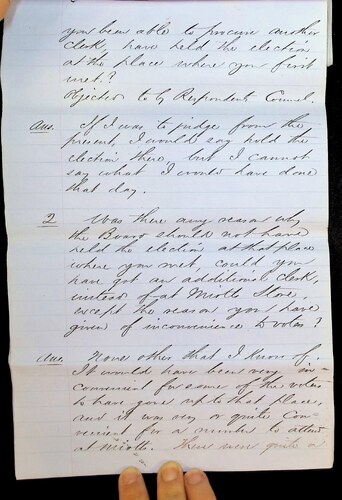 you been able to procure another
Clerk, have held the election
at the place where you first
met?
Objected to by Respondents Counsel.
Ans. If I was to judge from the
present, I would say hold the
election there, but I cannot
say what I would have done
that day.
2 Was there any reason why
the Board should not have
held the election at that place
where you met, could you
have got an additional clerk,
instead of at Miotts Store,
except the reason you have
given of inconvenience to voters?
Ans. None other that I know of.
It would have been very in-
convenient for some of the voters
to have gone up to that place,
and it was very or quite Con-
venient for a number to attend
at Miotts. There were quite a